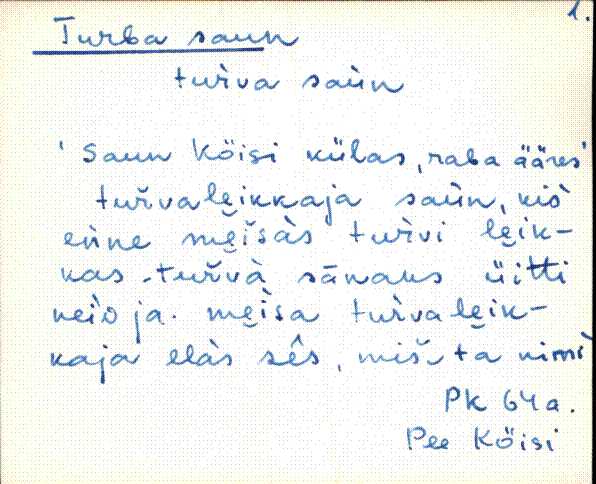 1.
Turba saun
turva saùn
'Saun Köisi külas, raba ääres'
turvalei̭kkaja saùn, kis
eǹne mei̭šàs turvi lei̭k-
kas. turvà sānaks üitti
neìo ja. mei̭sa turvalei̭k-
kaja elàs sês, miš ta nimì
PK 64a.
Pee Köisi